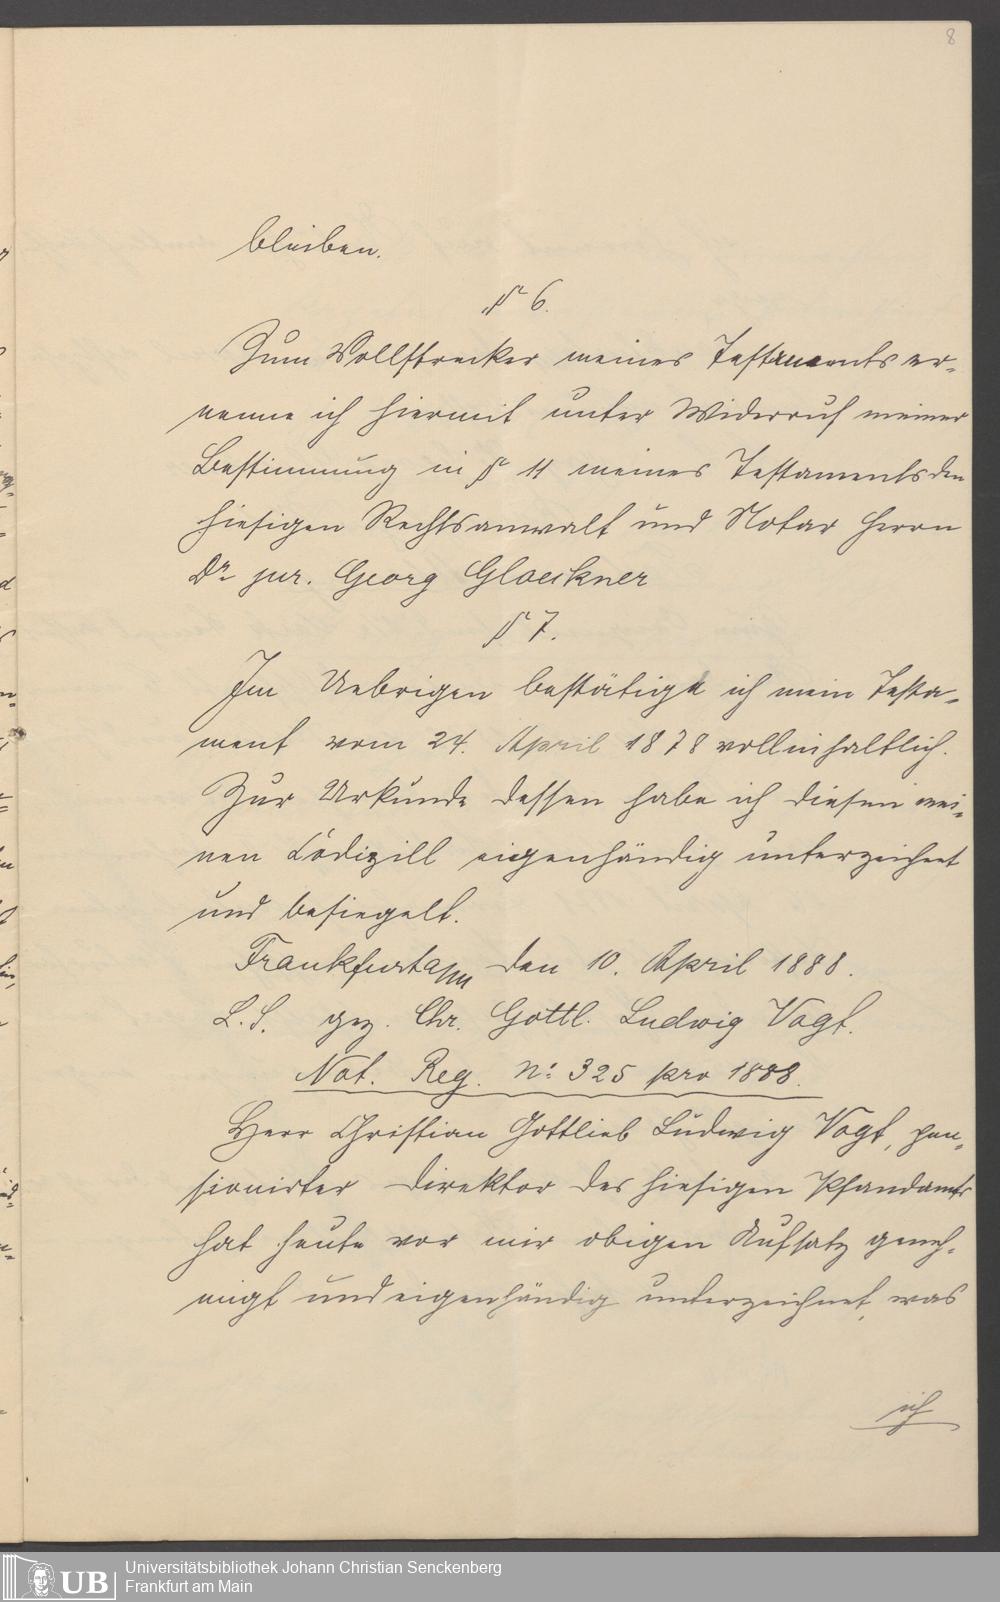 8
bleiben.
§ 6.
Zum Vollstrecker meines Testaments er-
nenne ich hiermit unter Widerruf meiner
Bestimmung in § 11 meines Testaments den
hiesigen Rechtsanwalt und Notar Herrn
Dr. jur. Georg Gloeckner
§ 7.
Im Uebrigen bestätige ich mein Testa-
ment vom 24. April 1878 vollinhaltlich.
Zur Urkunde dessen habe ich diesen mei-
nen Codizill eigenhändig unterzeichnet
und besiegelt.
Frankfurt a/m den 10. April 1888.
L. S. gez. Chr. Gottl. Ludwig Vogt.
Not. Reg. No: 325 pro 1888.
Herr Christian Gottlieb Ludwig Vogt, pen-
sionirter Direktor des hiesigen Pfandamts
hat heute vor mir obigen Aufsatz geneh-
migt und eigenhändig unterzeichnet, was
ich
UB
Universitätsbibliothek Johann Christian Senckenberg
Frankfurt am Main